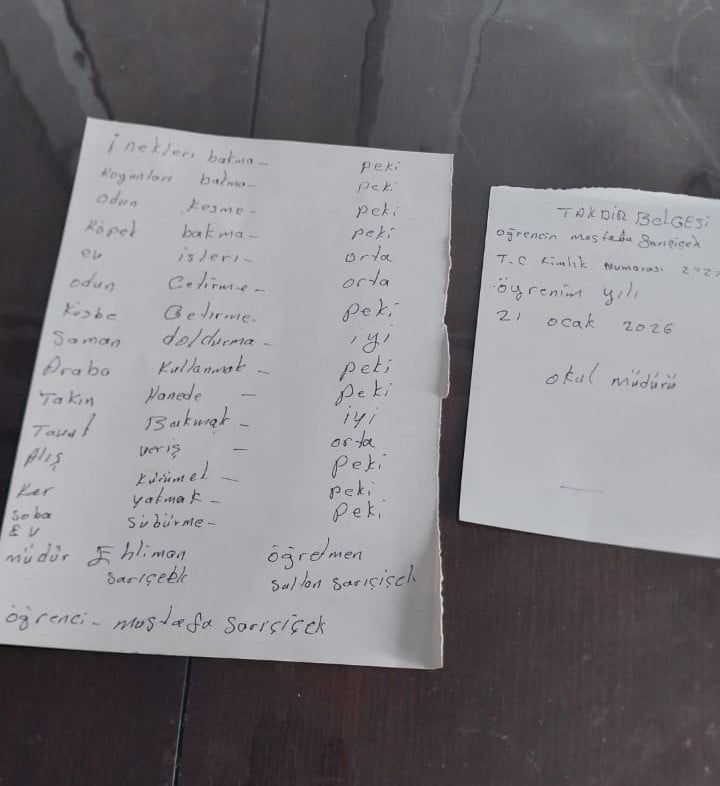 İnekleri bakma - peki
Koyunları bakma - peki
odun kesme - peki
Köpek bakma - peki
ev işleri - orta
odun Getirme - orta
Küsbe Getirme - peki
Saman doldurma - iyi
Araba Kullanmak - peki
Takın Hanede - peki
Tavuk Bakmak - iyi
Alış veriş - orta
Ker kürümek - peki
Soba yakmak - peki
EV sübürme - peki
müdür Ehliman öğretmen
sarıçeçk sultan sarıçiçek
öğrenci - mustafa sarıçiçek
TAKDİR BELGESİ
öğrencin mustafa Sarıçiçek
T.C Kimlik Numarası 2727
öğrenim yılı
21 ocak 2026
okul müdürü